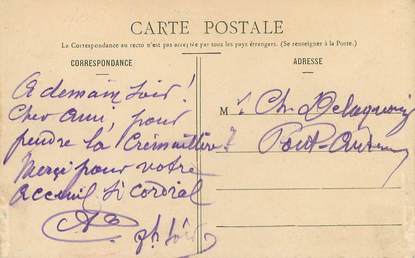 CARTE POSTALE
La Correspondance au recto n'est pas acceptée par tous les pays étrangers. (Se renseigner à la Poste.)
CORRESPONDANCE
ADRESSE
A demain soir!
Cher ami, pour
pendre la Crémaillère
Merçi pour votre
accueil si cordial
M. Ch. Delaquaize
Pont-Audemer